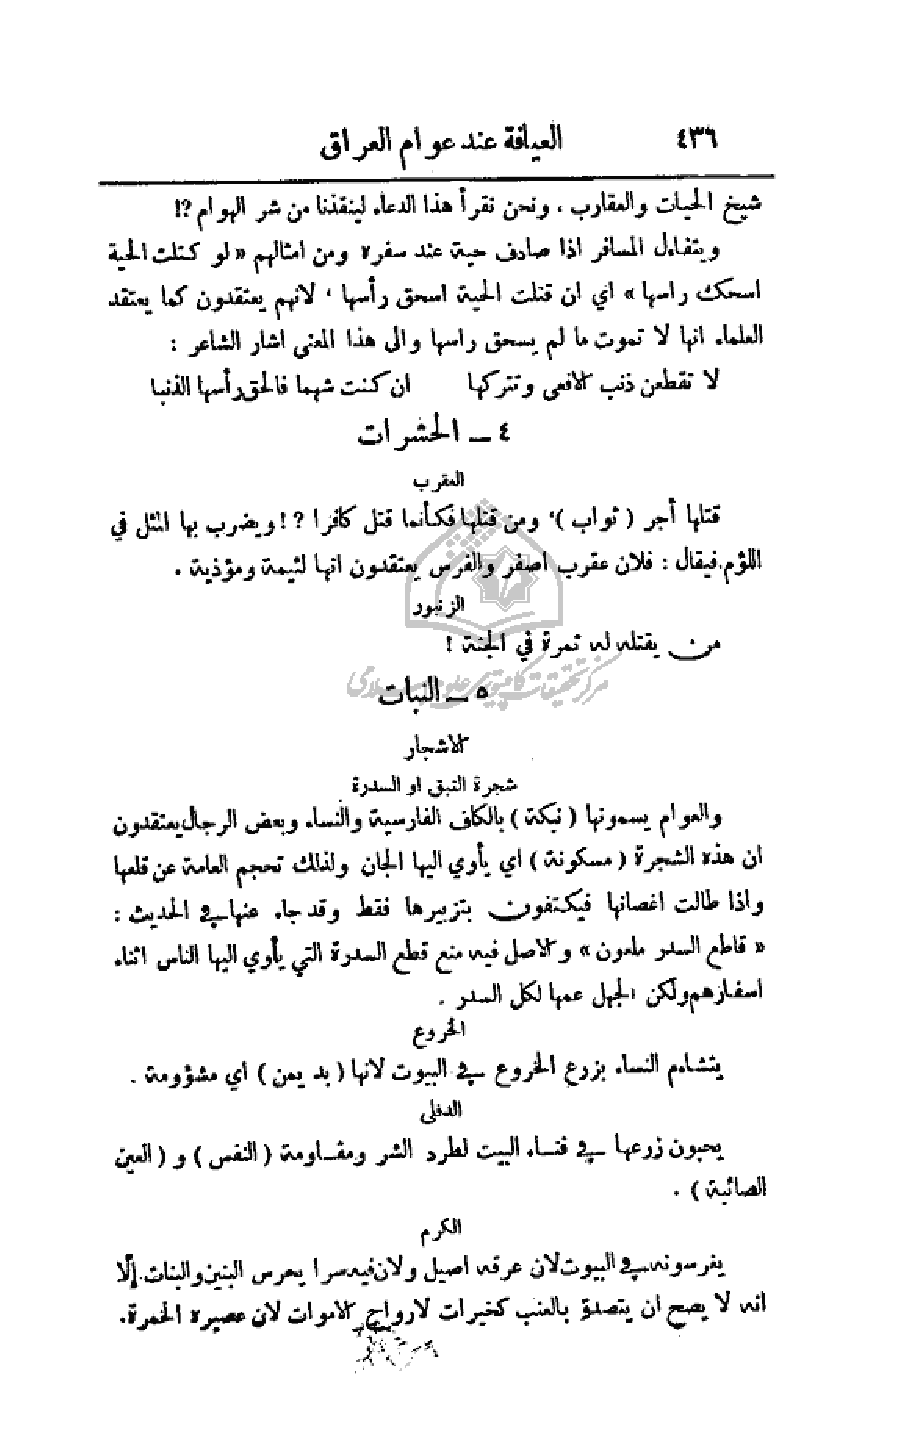 ٤٣٦ العيافة عند عوام العراق
شيخ الحيات والعقارب ، ونحن نقرأ هذا الدعاء لينقذنا من شر الهوام ?!
ويتفاءل المسافر اذا صادف حية عند سفره ومن امثالهم « لو كتلت الحية
اسحك راسها » اي ان قتلت الحية اسحق رأسها ، لانهم يعتقدون كما يعتقد
العلماء انها لا تموت ما لم يسحق راسها والى هذا المعنى اشار الشاعر :
لا تقطعن ذنب الافعى وتتركها ان كنت شهما فالحق رأسها الذنبا
٤ ــ الحشرات
العقرب
قتلها أجر ( ثواب )، ومن قتلها فكأنما قتل كافرا ?! ويضرب بها المثل في
اللؤم فيقال : فلان عقرب اصفر والفرس يعتقدون انها لئيمة ومؤذية .
الزنبور
من يقتله له ثمرة في الجنة !
مركز تحقيقات كامپيوتري علوم اسلامي
٥ ــ النبات
الاشجار
شجرة النبق او السدرة
والعوام يسمونها ( نبكة ) بالكاف الفارسية والنساء وبعض الرجال يعتقدون
ان هذه الشجرة ( مسكونة ) اي يأوي اليها الجان ولذلك تحجم العامة عن قلعها
واذا طالت اغصانها فيكتفون بتزبيرها فقط وقد جاء عنها في الحديث :
« قاطع السدر ملعون » والاصل فيه منع قطع السدرة التي يأوي اليها الناس اثناء
اسفارهم ولكن الجهل عمها لكل السدر .
الخروع
يتشاءم النساء بزرع الخروع في البيوت لانها ( بد يمن ) اي مشؤومة .
الدفلى
يحبون زرعها في فناء البيت لطرد الشر ومقاومة ( النفس ) و ( العين
الصائبة ) .
الكرم
يغرسونه في البيوت لان عرقه اصيل ولان فيه سرا يحرس البنين والبنات إلا
انه لا يصح ان يتصدق بالعنب كخيرات لارواح الاموات لان عصيره الخمرة.